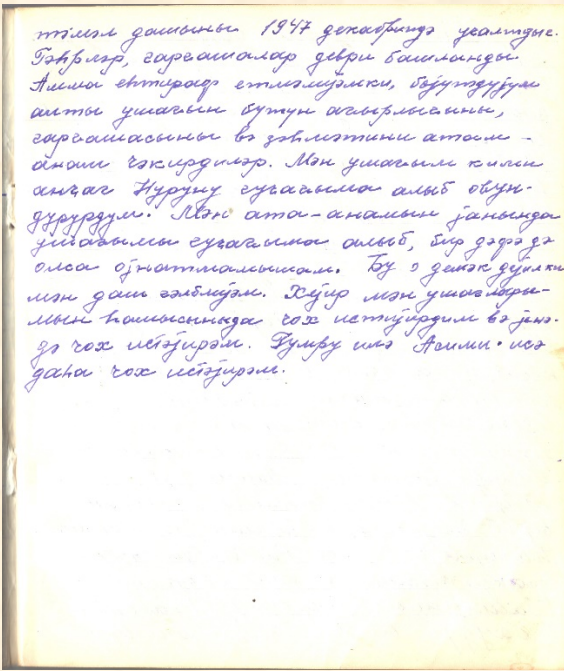 тəмəл дашыны 1947 декабриндə учалтдыг.
Гəһрлəр, гаргашалар деври башланды
Амма етираф етмəлијəмки, бөјүтдүјүм
алты ушағын бүтүн ағырлығыны,
гаргашасыны вə зəһмəтини атам -
анам чəкирдилəр. Мəн ушағым кими
анҹаг Нуруну гуҹағыма алыб овун-
дурурдум. Мəн ата-анамын јанында
ушағымы гуҹағыма алыб, бир дəфə дə
олса ојнатмамышам. Бу о демəк дүјилки
мəн даш гəлблијəм. Хејир мəн ушаглары-
мын һамысыныда чох истијирдим вə јенə-
дə чох истəјирəм. Гумру илə Асими исə
даһа чох истəјирəм.